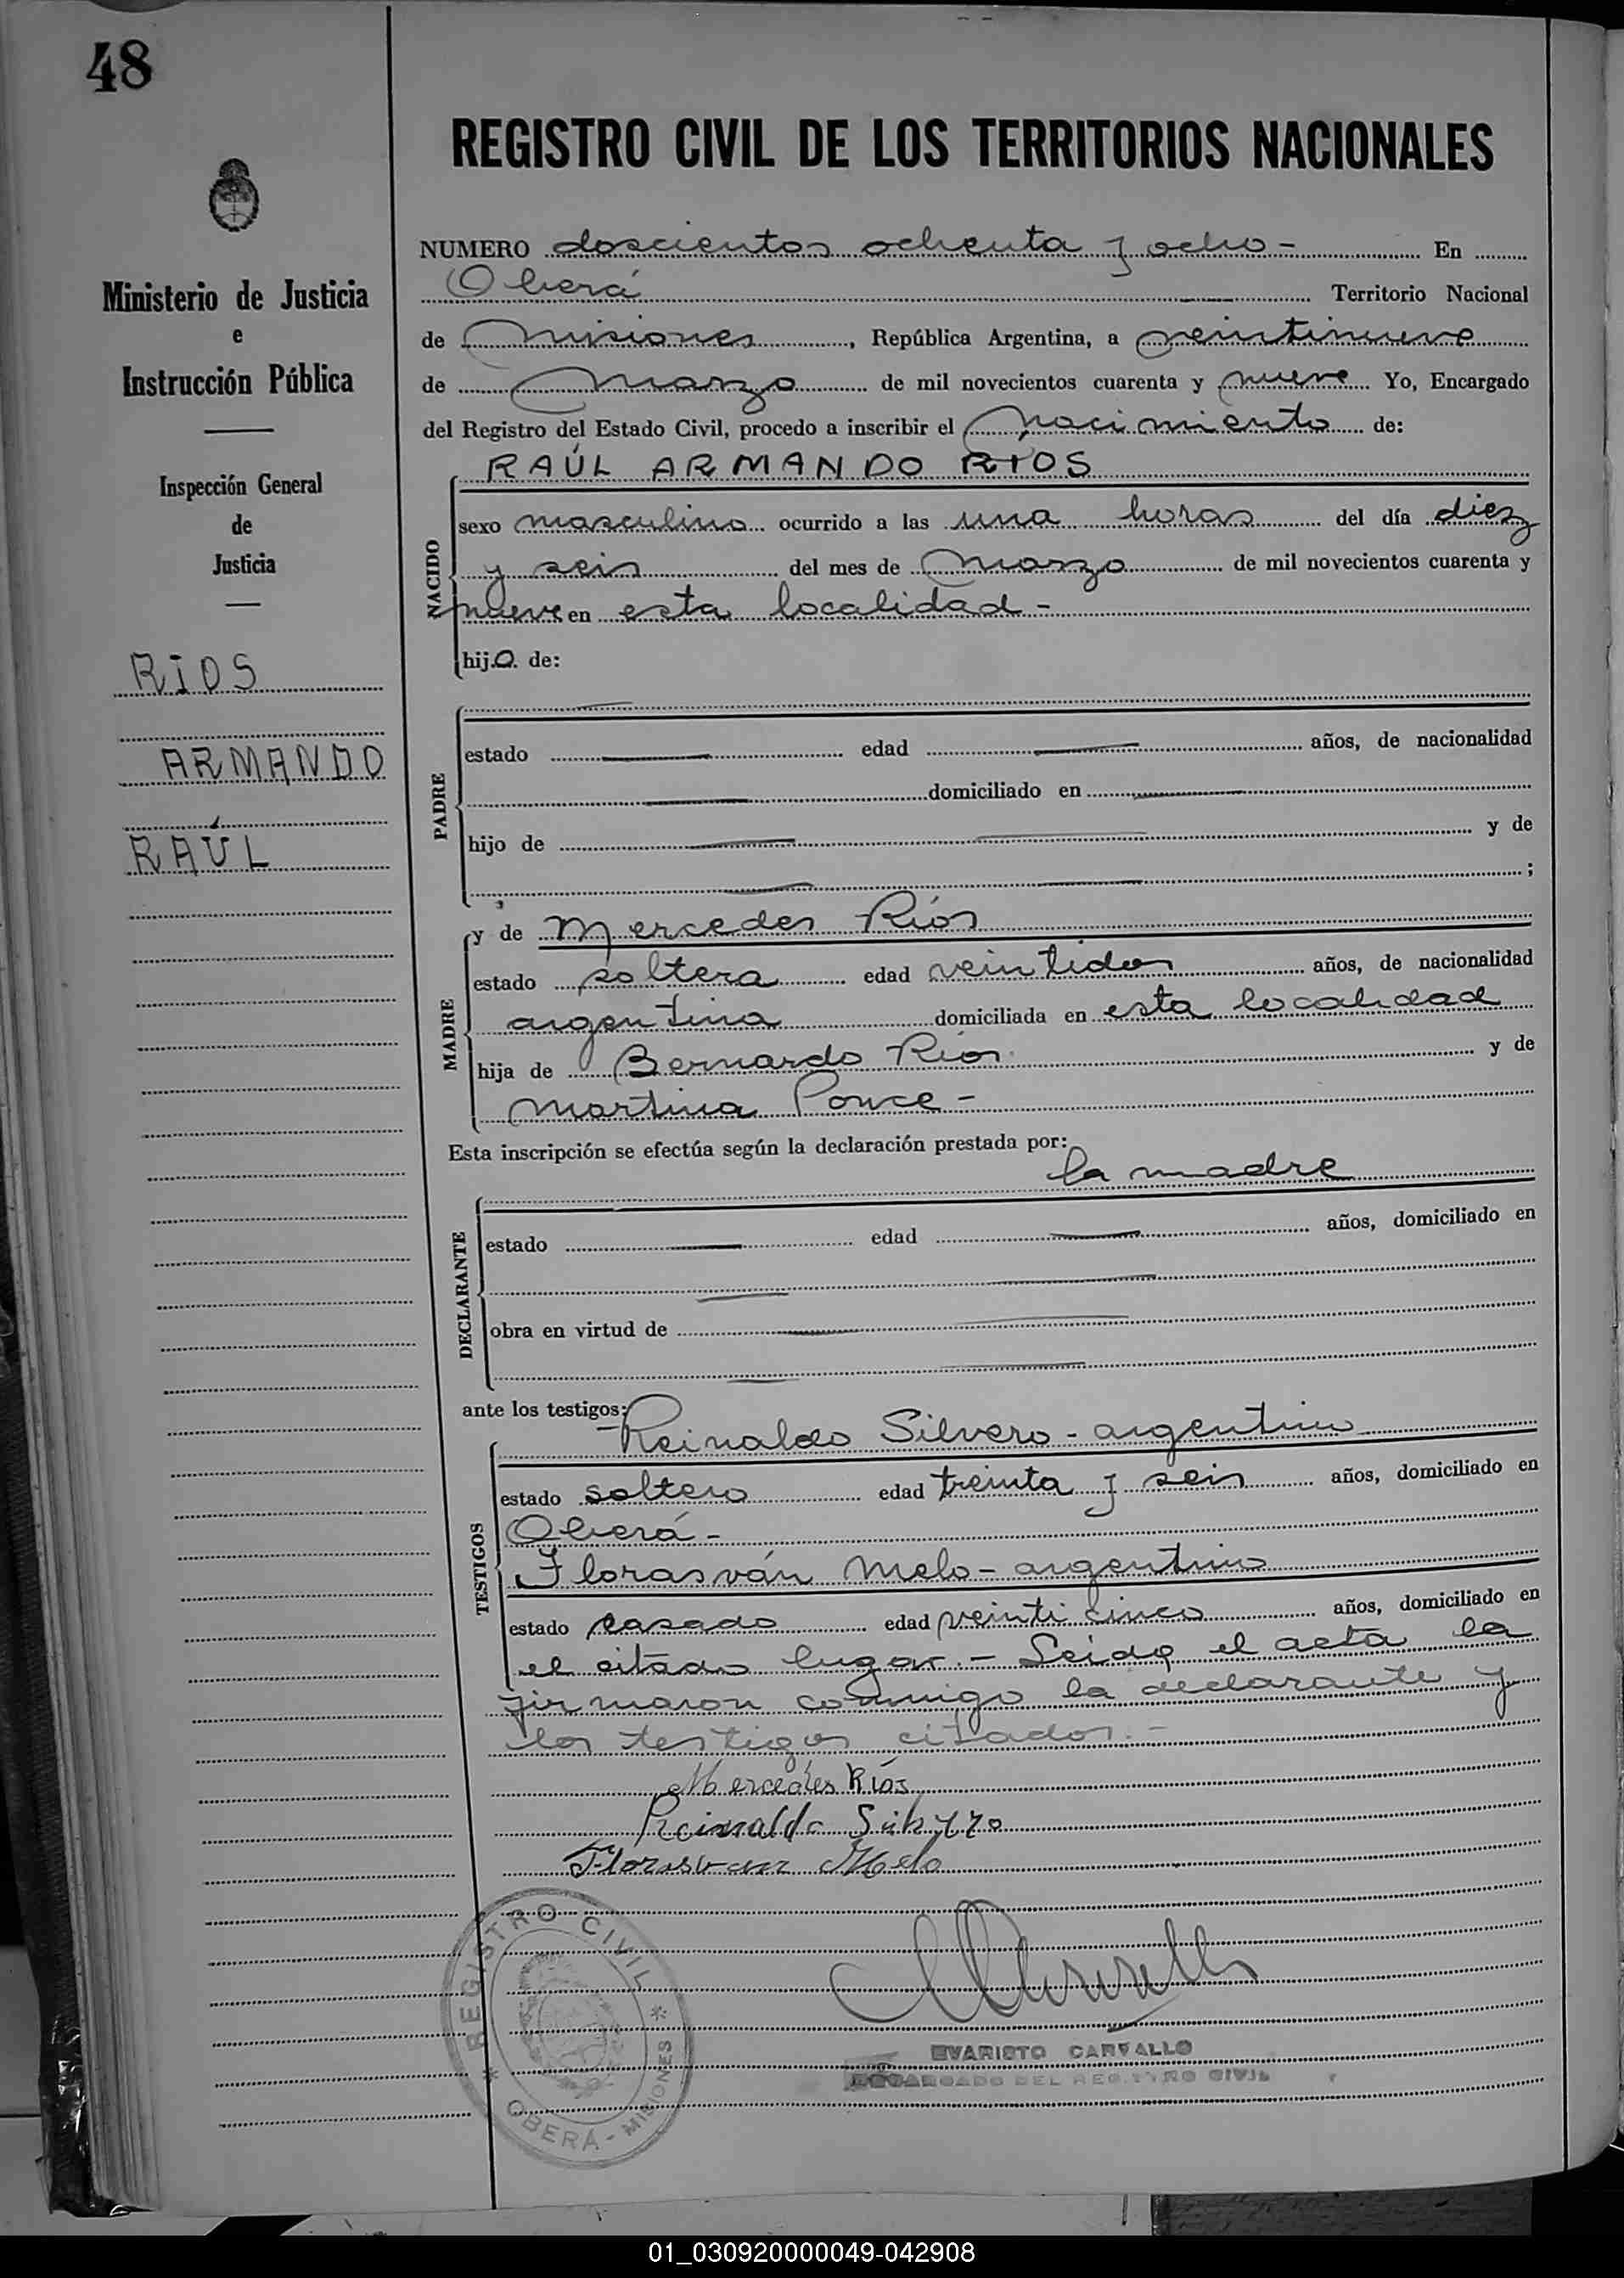 48
REGISTRO CIVIL DE LOS TERRITORIOS NACIONALES
Ministerio de Justicia
e
Instrucción Pública
Inspección General
de
Justicia
RIOS
ARMANDO
RAÚL
NUMERO doscientos ochenta y ocho - En
Oberá Territorio Nacional
de Misiones, República Argentina, a veintinueve
de Marzo de mil novecientos cuarenta y nueve Yo, Encargado
del Registro del Estado Civil, procedo a inscribir el nacimiento de:
NACIDO
RAÚL ARMANDO RIOS
sexo masculino ocurrido a las una horas del día diez
y seis del mes de Marzo de mil novecientos cuarenta y
nueve en esta localidad -
hijo de:
PADRE
estado edad años, de nacionalidad
domiciliado en
hijo de y de
;
MADRE
y de Mercedes Ríos
estado soltera edad veintidos años, de nacionalidad
argentina domiciliada en esta localidad
hija de Bernardo Ríos y de
Martina Ponce -
Esta inscripción se efectúa según la declaración prestada por:
la madre
DECLARANTE
estado edad años, domiciliado en
obra en virtud de
ante los testigos:
TESTIGOS
Reinaldo Silvero - argentino
estado soltero edad treinta y seis años, domiciliado en
Oberá -
Florasván Melo - argentino
estado casado edad veinticinco años, domiciliado en
el citado lugar.- Leida el acta la
firmaron conmigo la declarante y
los testigos citados.-
Mercedes Ríos
Reinaldo Silvero
Florasvan Melo
REGISTRO CIVIL
OBERÁ - MISIONES
EVARISTO CARVALLO
ENCARGADO DEL REGISTRO CIVIL
01_030920000049-042908